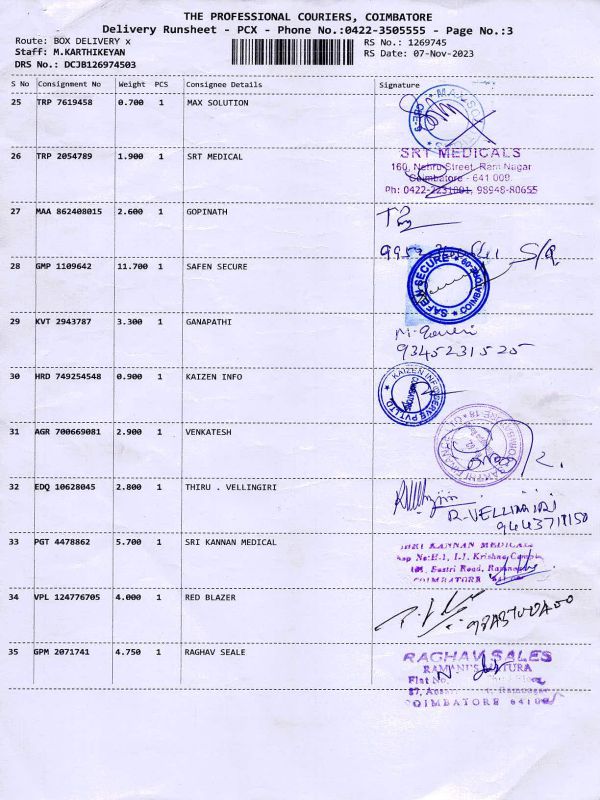 THE PROFESSIONAL COURIERS, COIMBATORE
Delivery Runsheet - PCX - Phone No.:0422-3505555 - Page No.:3
Route: BOX DELIVERY x
RS No.: 1269745
Staff: M.KARTHIKEYAN
RS Date: 07-Nov-2023
DRS No.: DCJB126974503
S No Consignment No Weight PCS Consignee Details Signature
25 TRP 7619458 0.700 1 MAX SOLUTION
26 TRP 2054789 1.900 1 SRT MEDICAL
SRT MEDICALS
160, Nehru Street, Ram Nagar
Coimbatore - 641 009.
Ph: 0422-2231001, 98948-80655
27 MAA 862408015 2.600 1 GOPINATH
28 GMP 1109642 11.700 1 SAFEN SECURE
SAFEN SECURE
29 KVT 2943787 3.300 1 GANAPATHI
9345231525
30 HRD 749254548 0.900 1 KAIZEN INFO
KAIZEN INFOSERVE PVT LTD.
31 AGR 700669081 2.900 1 VENKATESH
32 EDQ 10628045 2.800 1 THIRU . VELLINGIRI
33 PGT 4478862 5.700 1 SRI KANNAN MEDICAL
KANNAN MEDICAL
COIMBATORE
34 VPL 124776705 4.000 1 RED BLAZER
35 GPM 2071741 4.750 1 RAGHAV SEALE
RAGHAV SALES
Flat No.
COIMBATORE